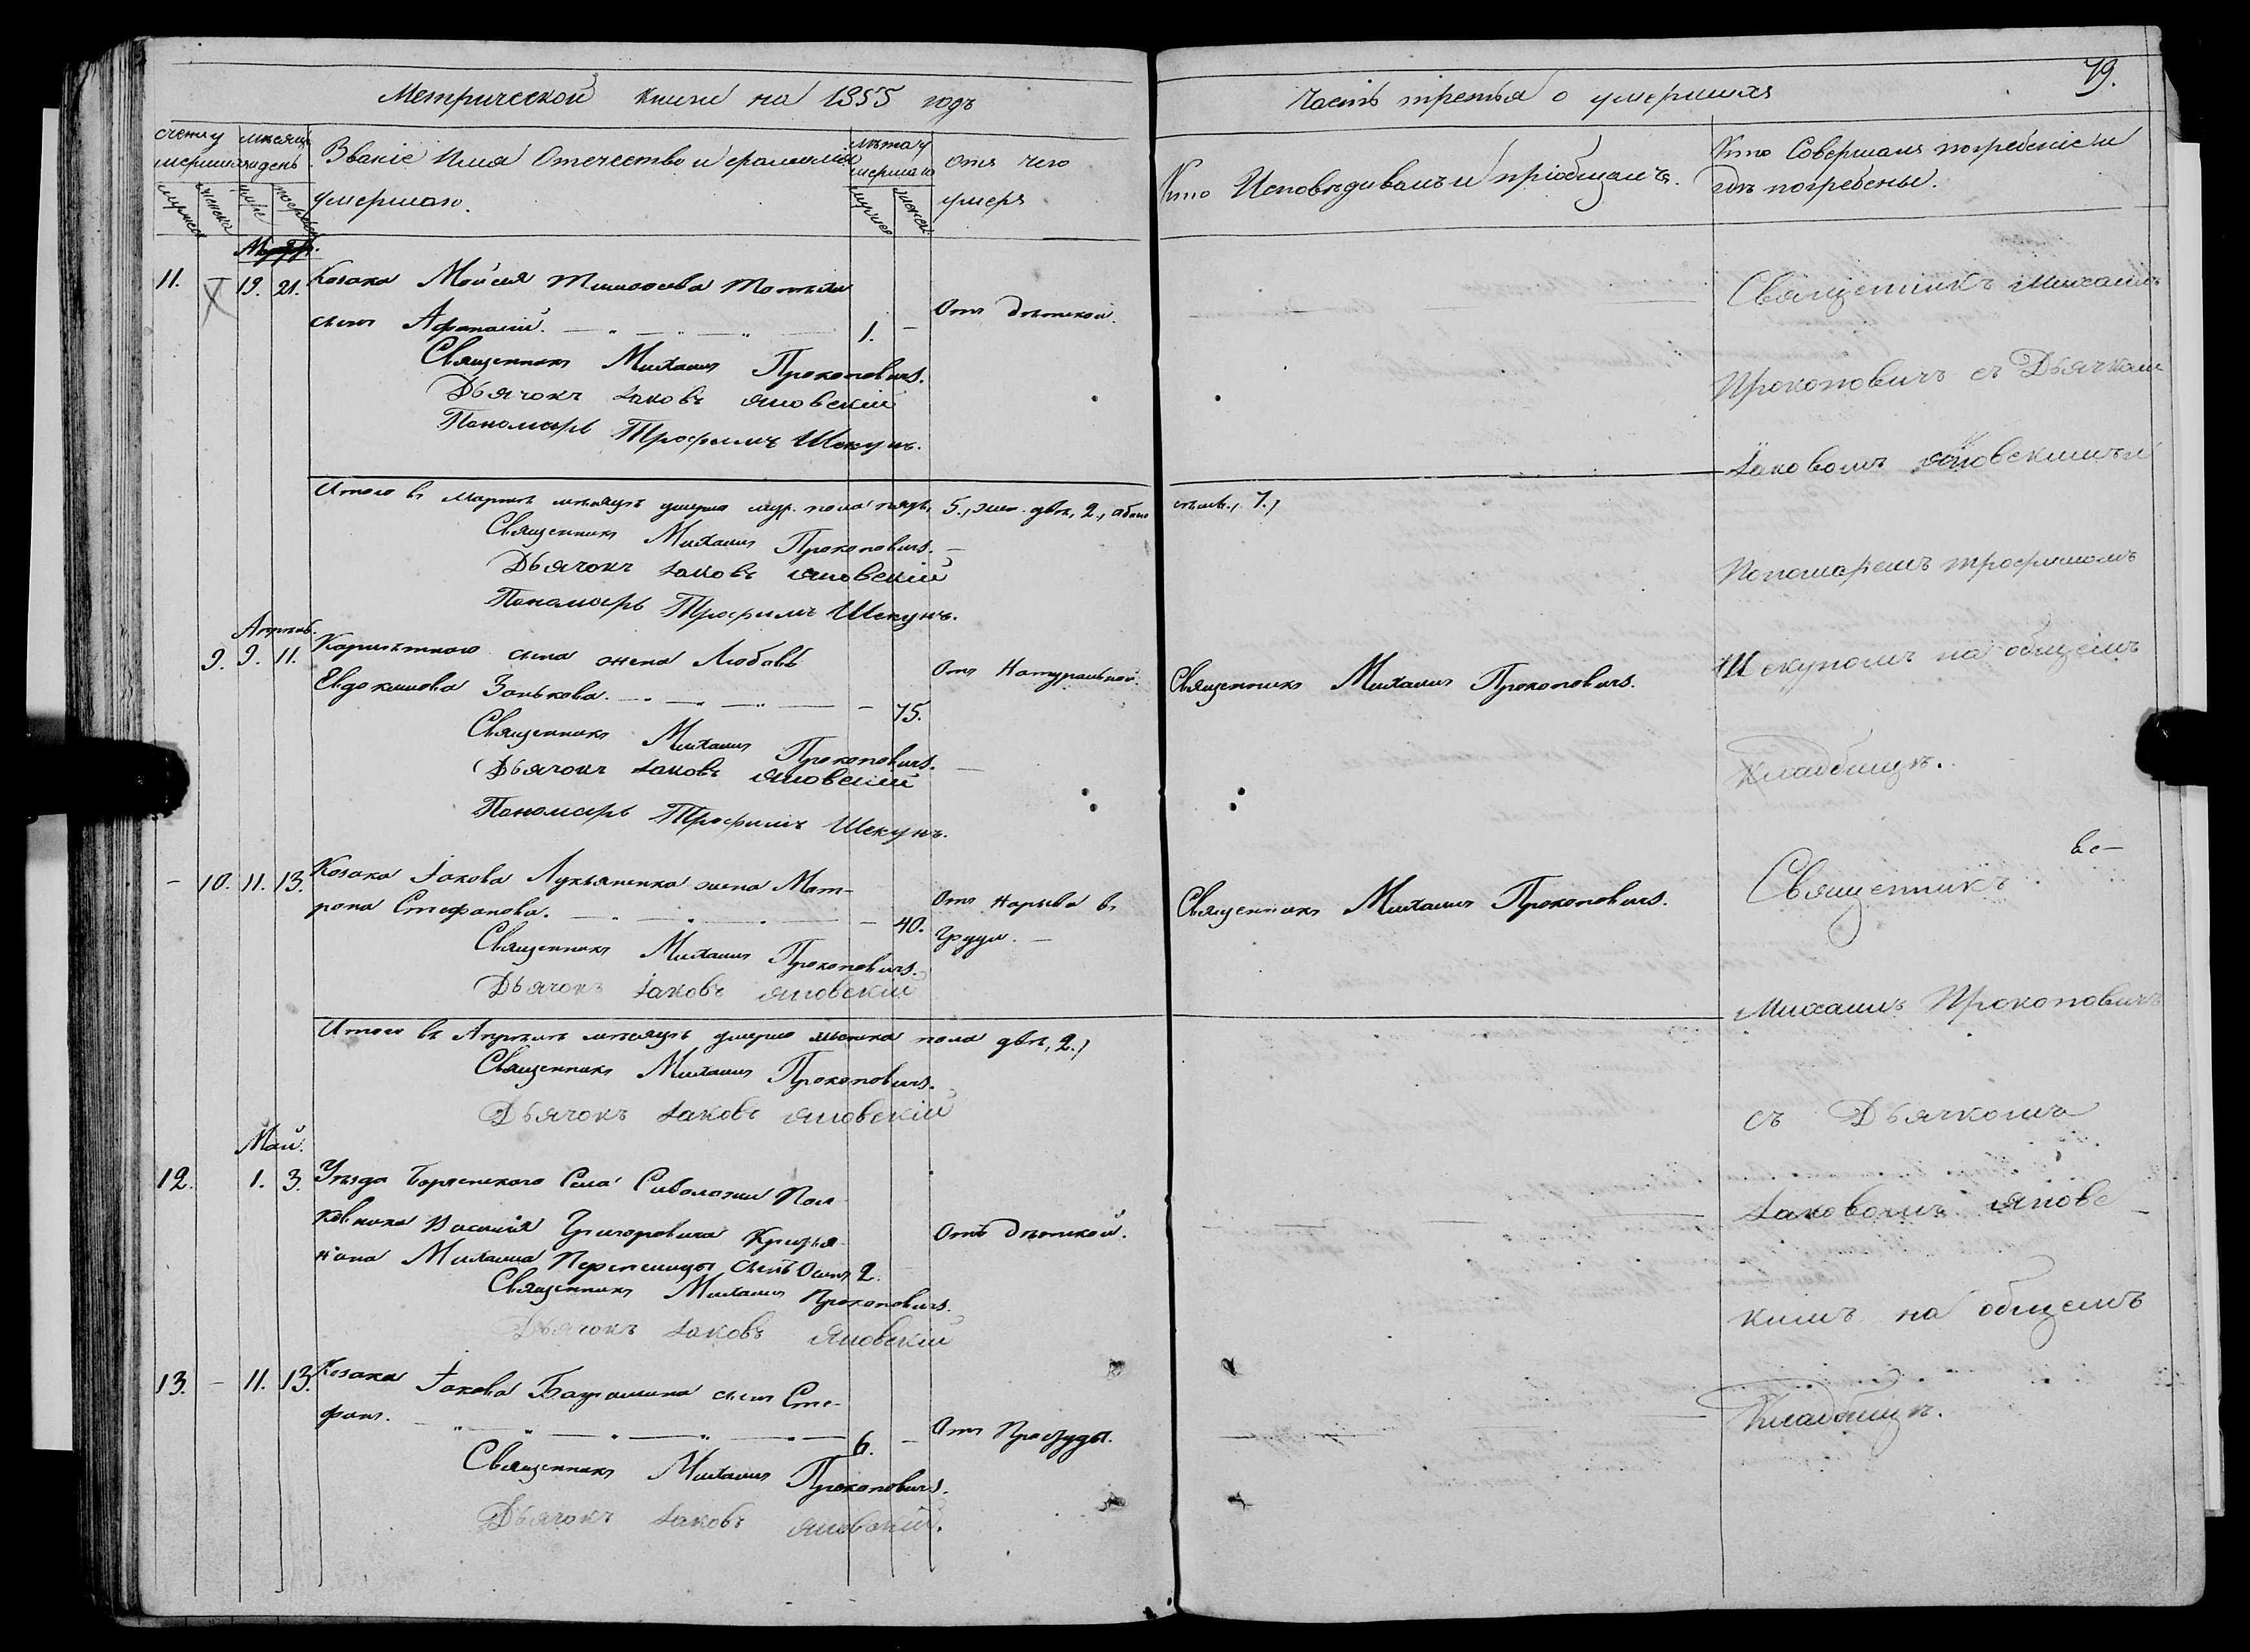 Метрической книги на 1855 годъ
часть третья о умершихъ
79.
счетъ у
мершихъ
мѣсяцъ
и день
Званіе Имя Отечество и фамилія
умершаго.
лѣта у
мершаго
отъ чего
умеръ
Кто Исповѣдивалъ и пріобщалъ.
Кто Совершалъ погребеніе и
гдѣ погребены.
11. 19. 21. Козака Мойсея Тимофеева
сынъ Афанасій. 1. – Отъ дѣтской.
Священникъ Михаилъ Прокоповичъ.
Дьячокъ Іаковъ Яновскій
Пономарь Трофимъ Шекунъ.
Священникъ Михаилъ
Прокоповичъ съ Дьячкомъ
Іаковомъ Яновскимъ и
Пономаремъ Трофимомъ
Шекуномъ на общемъ
Кладбищѣ.
Итого въ Мартѣ мѣсяцѣ умерло муж. пола пять, 5., жен. двѣ, 2., обоего семь, 7.,
Священникъ Михаилъ Прокоповичъ. –
Дьячокъ Іаковъ Яновскій
Пономарь Трофимъ Шекунъ.
Апрѣль.
9. 9. 11. сына жена Любовь
Евдокимова Занькова. – 75. Отъ Натуральной. Священникъ Михаилъ Прокоповичъ.
Священникъ Михаилъ Прокоповичъ. –
Дьячокъ Іаковъ Яновскій
Пономарь Трофимъ Шекунъ.
– 10. 11. 13. Козака Іакова Лукьяненка жена Мат-
рона Стефанова. – 40. Отъ Нарыва въ
Груди. – Священникъ Михаилъ Прокоповичъ.
Священникъ Михаилъ Прокоповичъ.
Дьячокъ Іаковъ Яновскій
Священникъ
Михаилъ Прокоповичъ
съ Дьячкомъ
Іаковомъ Яновс
кимъ на общемъ
Кладбищѣ.
Итого въ Апрѣлѣ мѣсяцѣ умерло женска пола двѣ, 2.,
Священникъ Михаилъ Прокоповичъ.
Дьячокъ Іаковъ Яновскій
Май.
12. 1. 3. Уѣзда Борзенского Села Сиволожи Пол
ковника Василія Григоровича Крестья
нина Михаила Перепелицы сынъ 2. Отъ дѣтской.
Священникъ Михаилъ Прокоповичъ.
Дьячокъ Іаковъ Яновскій
13. – 11. 13. Козака Іакова сынъ Сте-
фанъ. 6. – Отъ Простуды.
Священникъ Михаилъ Прокоповичъ.
Дьячокъ Іаковъ Яновскій.